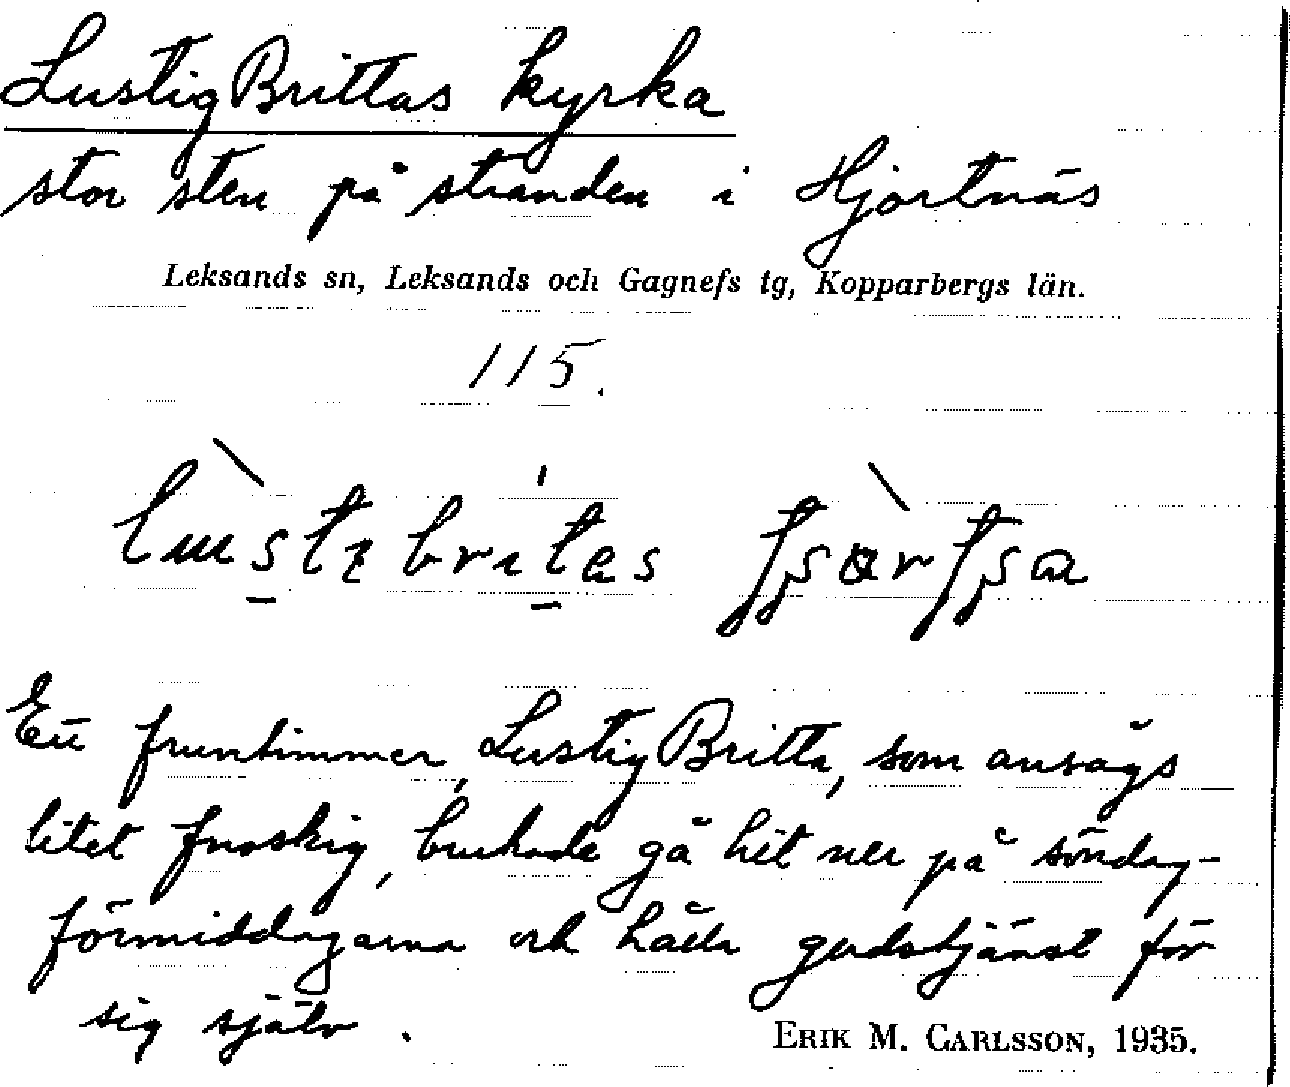 Lustig Brittas kyrka
stor sten på stranden i Hjortnäs
Leksands sn, Leksands och Gagnefs tg, Kopparbergs län.
115.
Ett fruntimmer, Lustig Britta, som ansågs
litet fnoskig, brukade gå hit ner på söndag-
förmiddagarna och hålla gudstjänst för
sig själv.
ERIK M. CARLSSON, 1935.